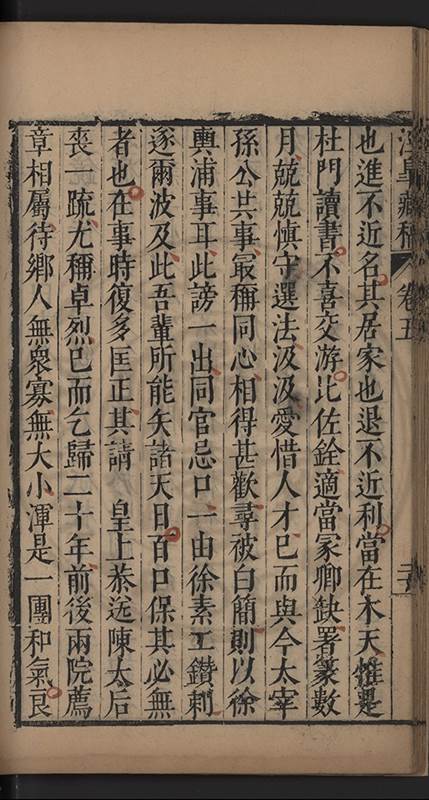 涇臯藏稿 卷五
也進不近名其居家也退不近利當在木天惟是
杜門讀書不喜交游比佐銓適當冡卿缺署篆數
月兢兢慎守選法汲汲愛惜人才已而與今太宰
孫公共事冣稱同心相得甚歡尋被白簡則以徐
輿浦事耳此謗一出同官忌口一由徐素工鑽刺
遂爾波及此吾輩所能矢諸天日百口保其必無
者也在事時復多匡正其請 皇上恭送陳太后
喪一疏尤稱卓烈已而乞歸二十年前後兩院薦
章相屬待鄉人無衆寡無大小渾是一團和氣良